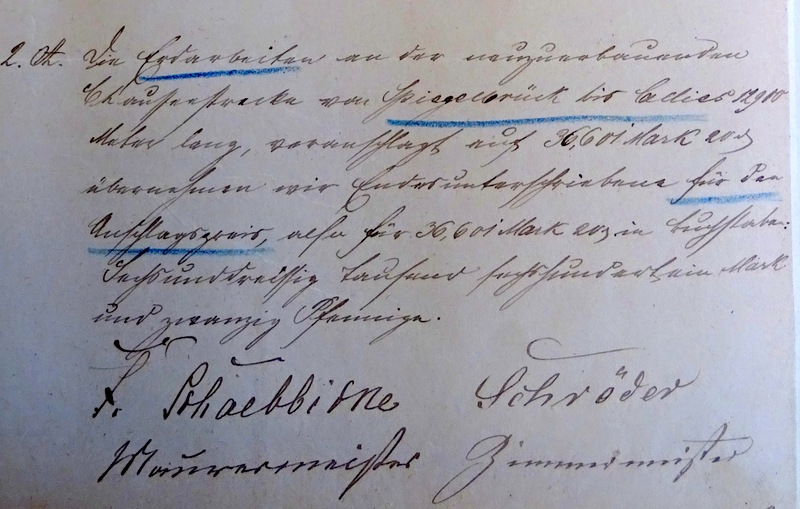 2. Die Erdarbeiten an der neuzuerbauenden
Chausseestrecke von Spiegelbrück bis 12900
Meter lang, veranschlagt auf 36,601 Mark 20 ₰
übernehmen wir Endesunterschriebene für den
Anschlagspreis, also für 36,601 Mark 20 ₰ in Buchstaben:
Sechsunddreissig Tausend sechshundertein Mark
und zwanzig Pfennige.
F. Schaebbicke Schröder
Maurermeister Zimmermeister